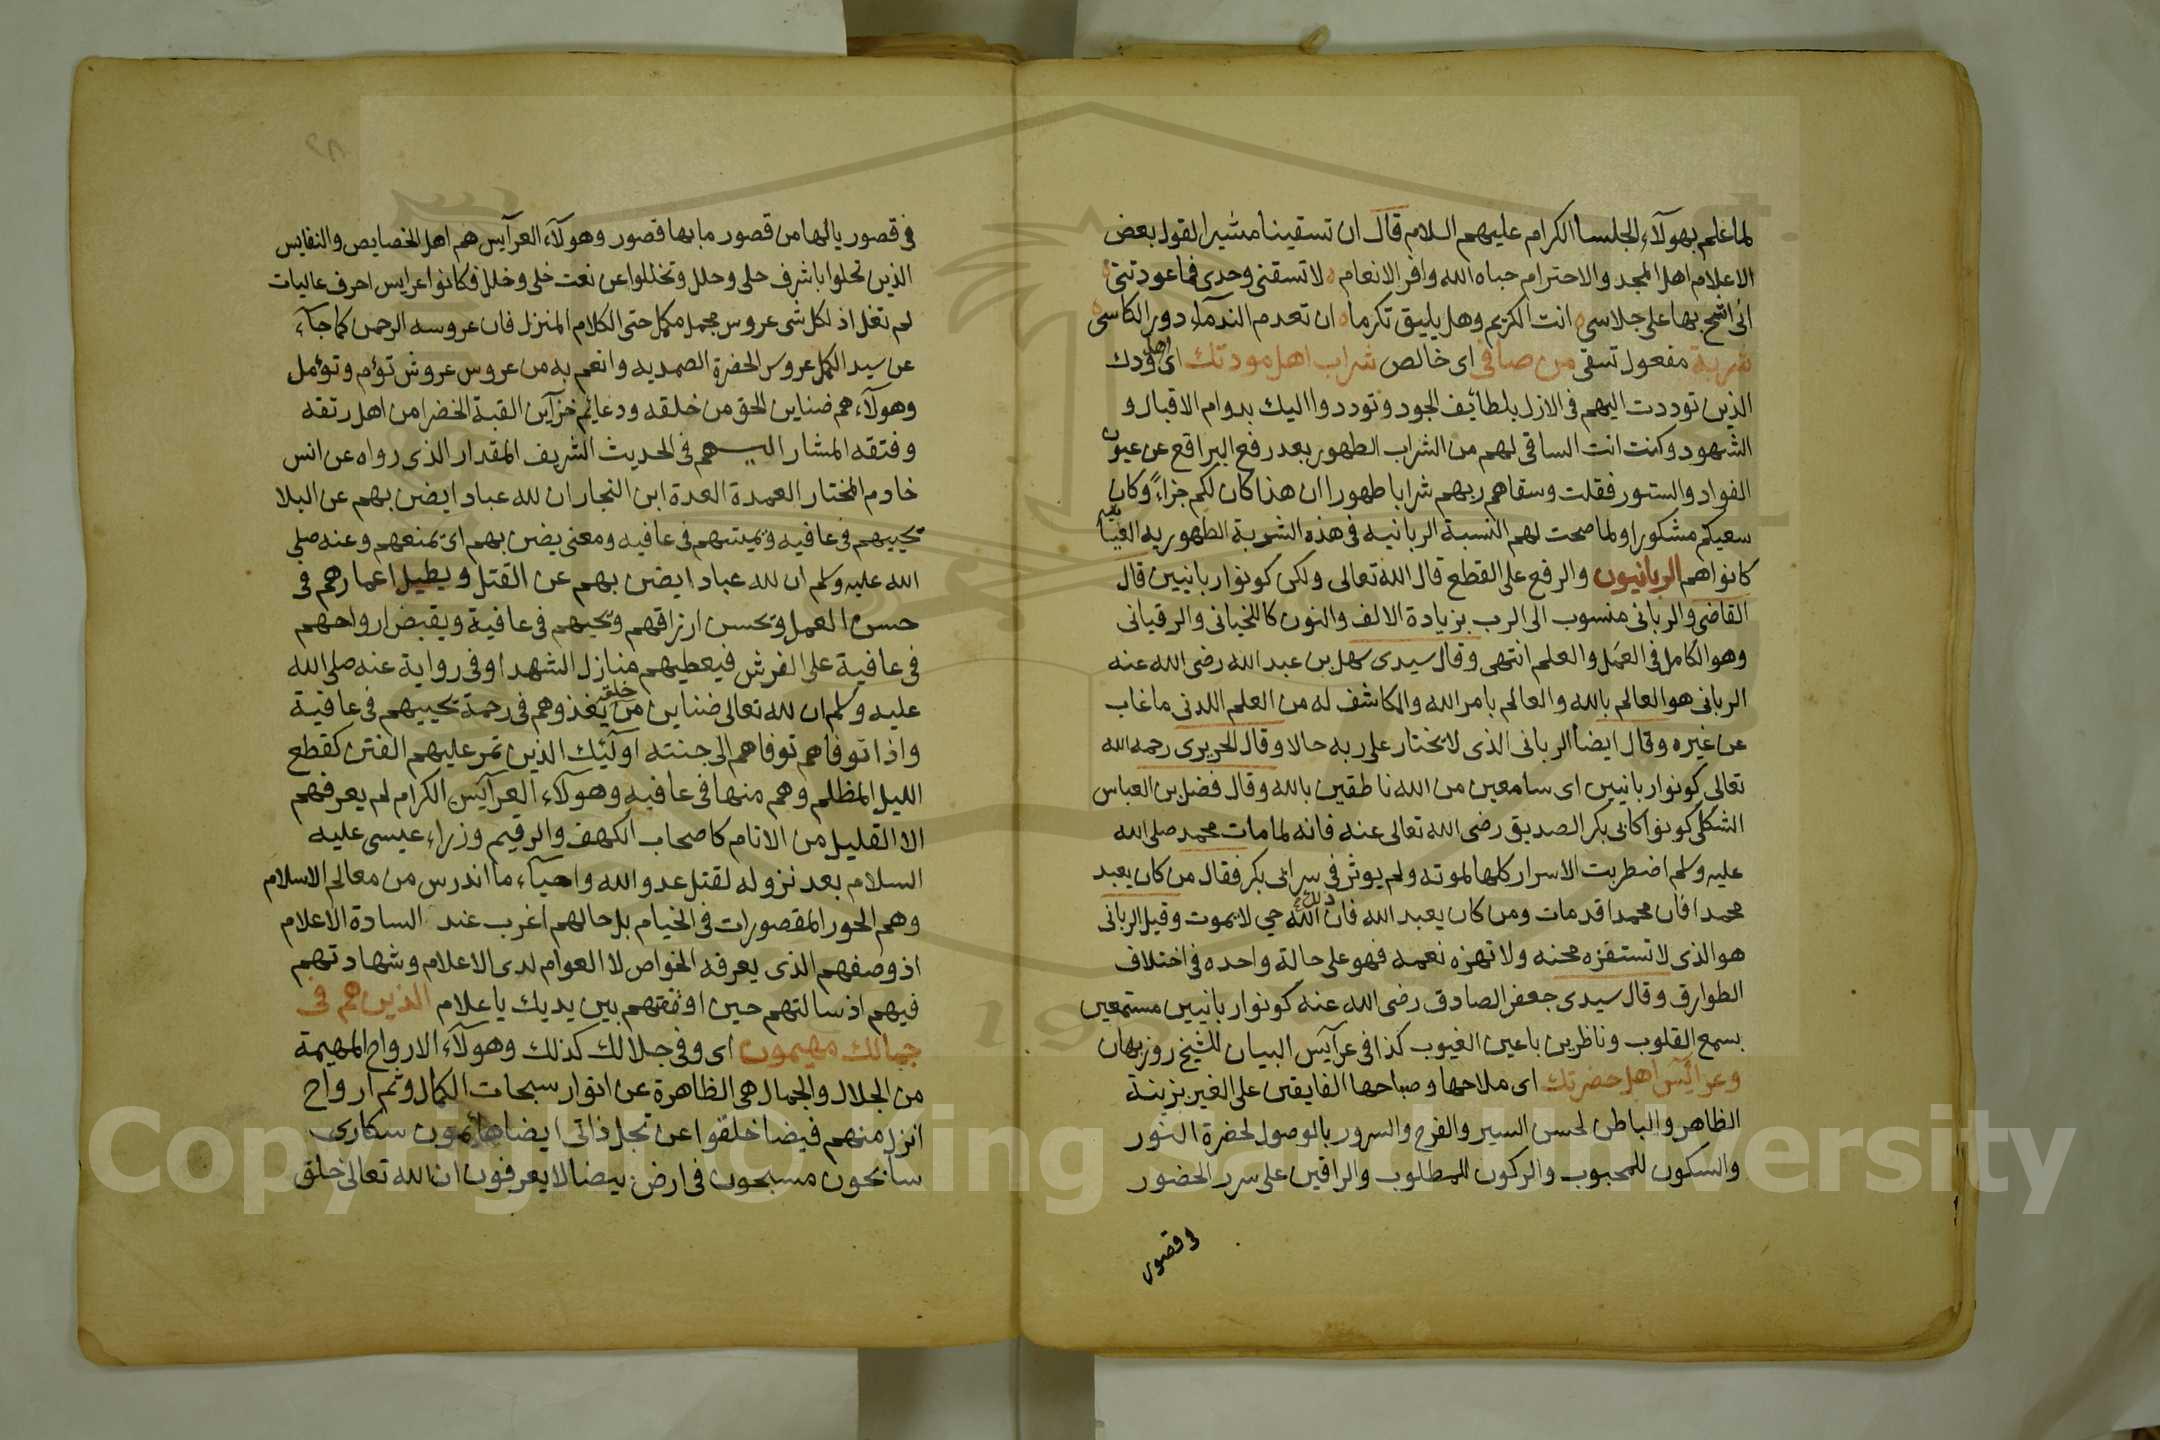 لما علم بهولآء الجلسا الكرام عليهم السلام قال ان تسقينا مشيرا لقول بعض
الاعلام اهل المجد والاحترام حباه الله وافر الانعام لا تسقنى وحدى فما عودتنى
انى اشح بها على جلاسى انت الكريم وهل يليق تكرما ان تعدم الندمآء دور الكاسى
شربة مفعول تسقى من صافى اى خالص شراب اهل مودتك اى اهل ودك
الذين توددت اليهم فى الازل بلطائف الجود وتوددوا اليك بدوام الاقبال و
الشهود وكنت انت الساقى لهم من الشراب الطهور بعد رفع البراقع عن عيون
الفواد والستور فقلت وسقاهم ربهم شرابا طهورا ان هذا كان لكم جزاء وكان
سعيكم مشكورا ولما صحت لهم النسبة الربانيه فى هذه الشربة الطهوريه
كانوا هم الربانيون والرفع على القطع قال الله تعالى ولكن كونوا ربانيين قال
القاضى والربانى منسوب الى الرب بزيادة الالف والنون كاللحيانى والرقبانى
وهو الكامل فى العمل والعلم انتهى وقال سيدى سهل بن عبد الله رضى الله عنه
الربانى هو العالم بالله والعالم بامر الله والمكاشف له من العلم اللدنى ما غاب
عن غيره وقال ايضا الربانى الذى لا يختار على ربه حالا وقال الحريرى رحمه الله
تعالى كونوا ربانيين اى سامعين من الله ناطقين بالله وقال فضل بن العباس
الشكلى كونوا كابى بكر الصديق رضى الله تعالى عنه فانه لما مات محمد صلى الله
عليه وسلم اضطربت الاسرار كلها لموته ولم يوثر فى سر ابى بكر فقال من كان يعبد
محمدا فان محمدا قد مات ومن كان يعبد الله فان الله حى لا يموت وقيل الربانى
هو الذى لا تستفزه محنه ولا تهزه نعمه فهو على حالة واحده فى اختلاف
الطوارق وقال سيدى جعفر الصادق رضى الله عنه كونوا ربانيين مستمعين
بسمع القلوب وناظرين باعين الغيوب كذا فى عرآيس البيان للشيخ روزبهان
وعرائس اهل حضرتك اى ملاحها وصباحها الفايقين على الغير بزينة
الظاهر والباطن لحسن السير والفرح والسرور بالوصول لحضرة النور
والسكون للمحبوب والركون للمطلوب والراقين على سرر الحضور
فى قصور
فى قصور يا لها من قصور ما بها قصور وهولآء العرآيس هم اهل الخصايص والنفايس
الذين تحلوا باشرف حلى وحلل وتخللوا عن نعت خلى وخلل فكانوا عرايس احرف عاليات
لم تغل اذ لكل شى عروس مجمل مكمل حتى الكلام المنزل فان عروسه الرحمن كما جآء
عن سيد الكمل عروس الحضرة الصمديه وانعم به من عروس عروش تؤم وتؤمل
وهولآء هم ضناين الحق من خلقه ودعايم خزآين القبة الخضرا من اهل رتقه
وفتقه المشار اليهم فى الحديث الشريف المقدار الذى رواه عن انس
خادم المختار العمدة العدة ابن النجار ان لله عبادا يضن بهم عن البلا
تحييهم فى عافيه ويميتهم فى عافيه ومعنى يضن بهم اى يمنعهم وعنه صلى
الله عليه وسلم ان لله عبادا يضن بهم عن القتل ويطيل اعمارهم فى
حسن العمل ويحسن ارزاقهم ويحييهم فى عافية ويقبض ارواحهم
فى عافية على الفرش فيعطيهم منازل الشهدا وفى رواية عنه صلى الله
عليه وسلم ان لله تعالى ضناين من خلقه يغذوهم فى رحمة يحييهم فى عافية
واذا توفاهم توفاهم الى جنته اولٓئك الذين تمر عليهم الفتن كقطع
الليل المظلم وهم منها فى عافيه وهولآء العرآيس الكرام لم يعرفهم
الا القليل من الانام كاصحاب الكهف والرقيم وزراء عيسى عليه
السلام بعد نزوله لقتل عدو الله واحيآء ما اندرس من معالم الاسلام
وهم الحور المقصورات فى الخيام بل حالهم اغرب عند السادة الاعلام
اذ وصفهم الذى يعرفه الخواص لا العوام لدى الاعلام وشهادتهم
فيهم اذ سالتهم حين اوقفتهم بين يديك يا علام الذين هم فى
جمالك مهيمون اى وفى جلالك كذلك وهولآء الارواح المهيمة
من الجلال والجمال هى الظاهرة عن انوار سبحات الكمال وثم ارواح
انزل منهم فيضا خلقوا عن تجل ذاتى ايضا هائمون سكارى
سائحون مسبحون فى ارض بيضا لا يعرفون ان الله تعالى خلق
Copyright © King Saud University